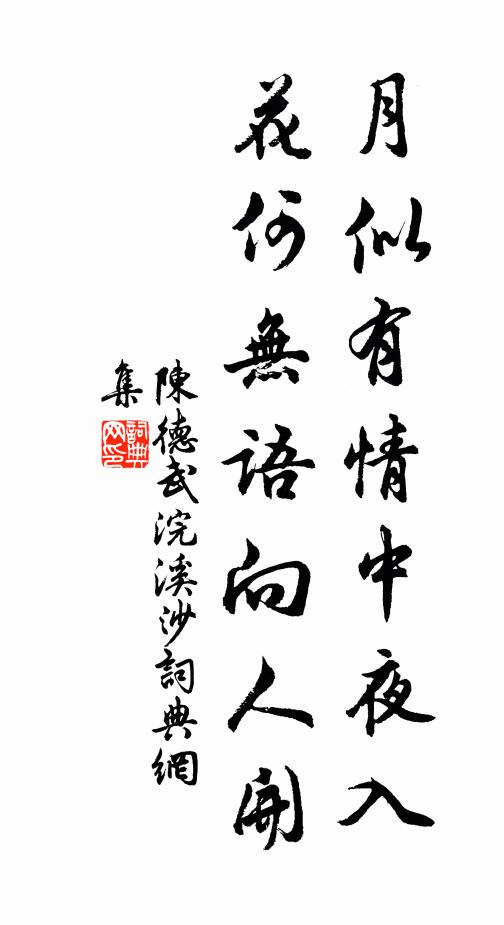 月似有情中夜入
花何無語向人開
陳德武浣溪沙詞典網
集
詞典
网印